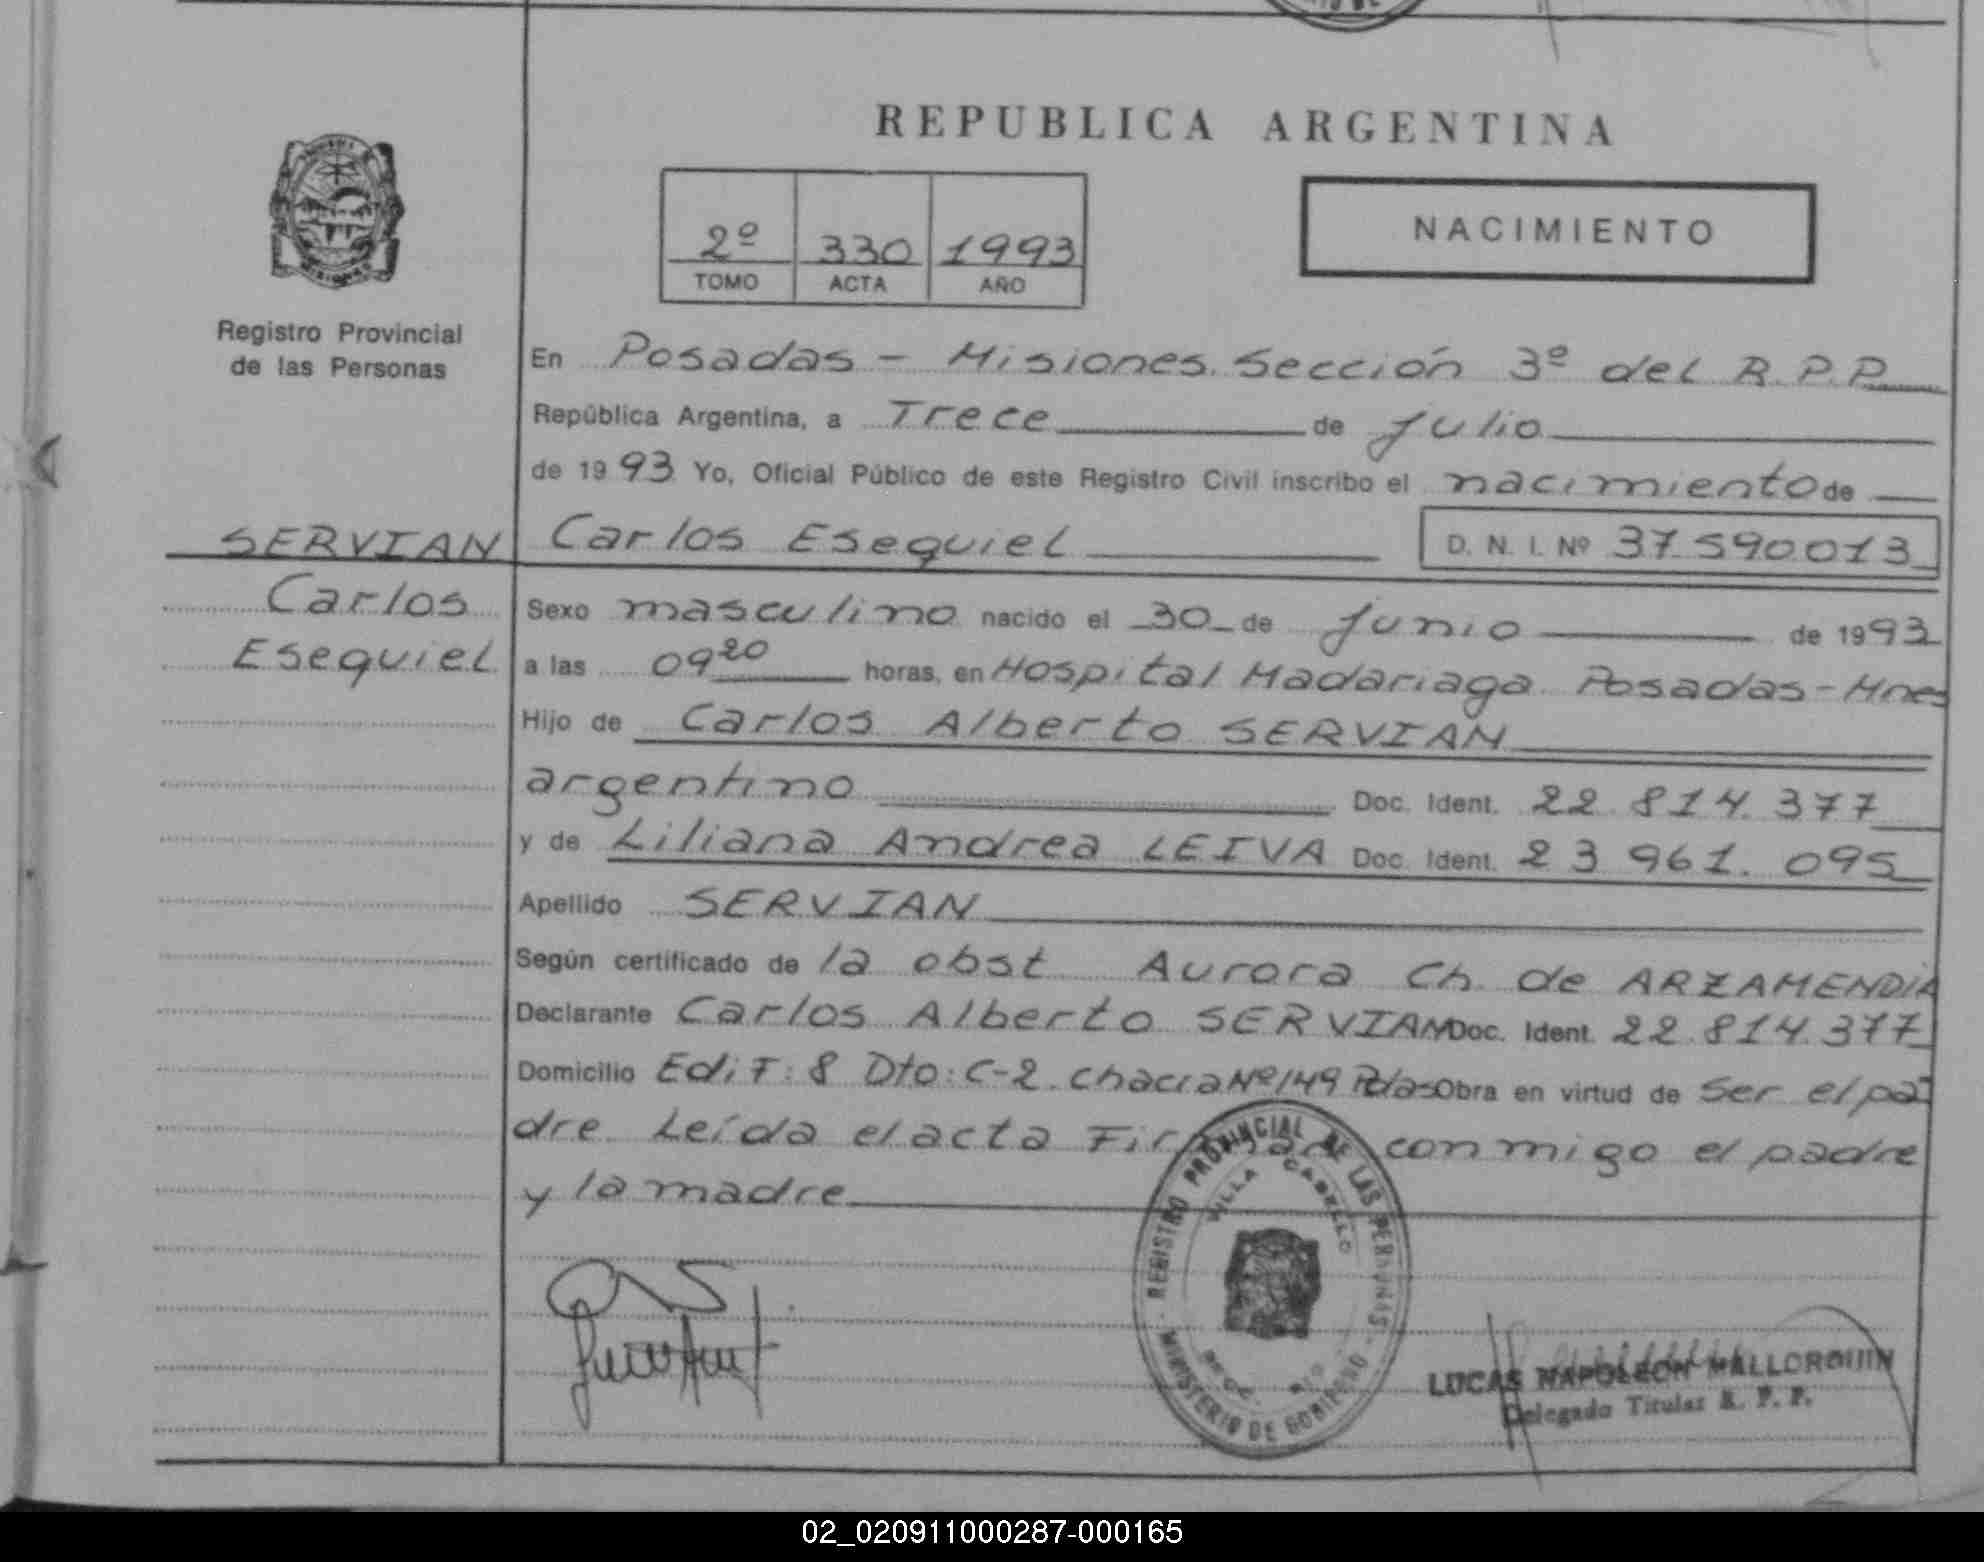 REPUBLICA ARGENTINA
2º 330 1993
TOMO ACTA AÑO
NACIMIENTO
Registro Provincial
de las Personas
En Posadas - Misiones. Sección 3º del R.P.P.
República Argentina, a Trece de Julio
de 1993 Yo, Oficial Público de este Registro Civil inscribo el nacimiento de
SERVIAN
Carlos
Esequiel
Carlos Esequiel D. N. I. Nº 37.590.013
Sexo masculino nacido el 30 de Junio de 1993
a las 09 20 horas, en Hospital Madariaga Posadas - Mnes
Hijo de Carlos Alberto SERVIAN
argentino Doc. Ident. 22.814.377
y de Liliana Andrea LEIVA Doc. Ident. 23.961.095
Apellido SERVIAN
Según certificado de la obst Aurora Ch. de ARZAMENDIA
Declarante Carlos Alberto SERVIAN Doc. Ident. 22.814.377
Domicilio Edif: 8 Dto: C-2. Chacra Nº 149 Pdas Obra en virtud de ser el pa
dre. Leída el acta Firman conmigo el padre
y la madre
REGISTRO PROVINCIAL DE LAS PERSONAS
VILLA CABELLO
MINISTERIO DE GOBIERNO
LUCAS NAPOLEON MALLORQUIN
Delegado Titular R. P. P.
02_020911000287-000165